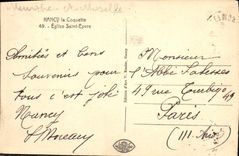 Meurthe-et-Moselle
NANCY la Coquette
49. - Eglise Saint-Epvre
Amitiés et bons
souvenirs pour
tous c'est joli
Nancy
Monsieur
l'Abbé
49 rue Turbigo 49
Paris
(III